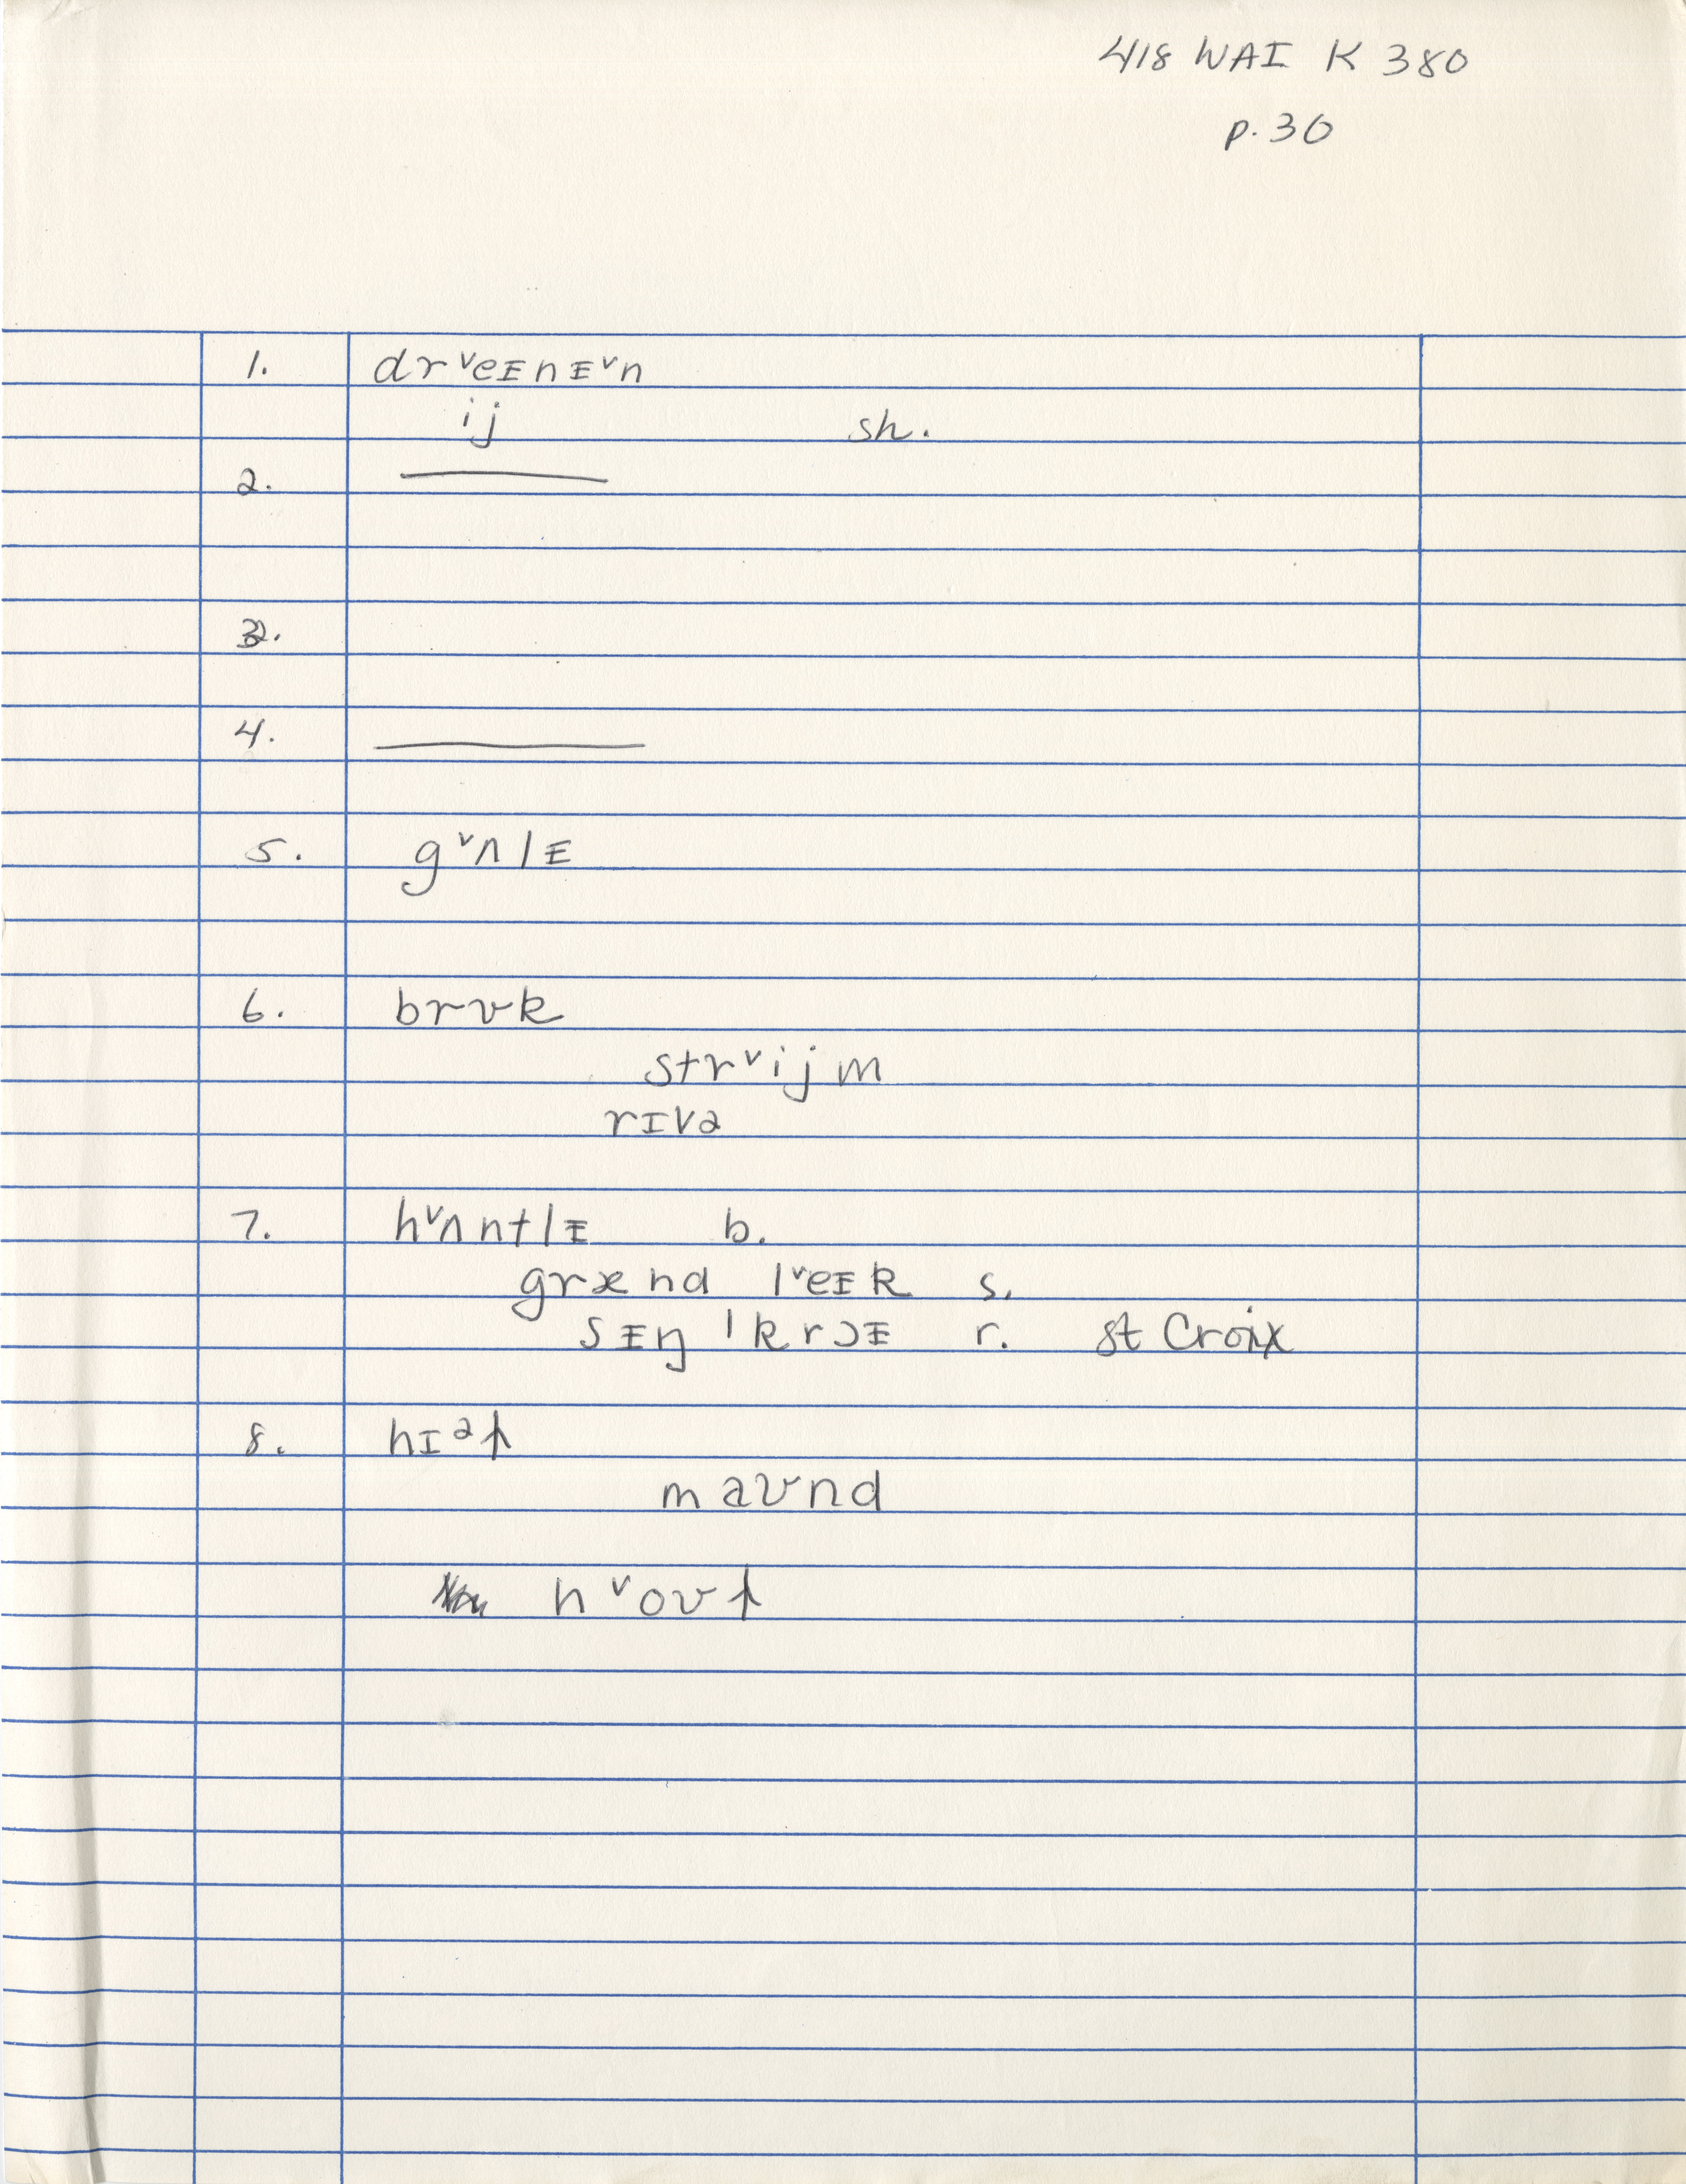 418 WAI K 380
p. 30
1. drˇeᵻnᵻˇn
ij sh.
2.
3.
4.
5. gˇʌlᵻ
6. brʊk
strˇijm
rɪvə
7. hˇʌntlᵻ b.
grænd lˇeᵻk s.
sᵻŋ ˈkrɔᵻ r. St Croix
8. hɪəɫ
maʊnd
nˇoʊɫ